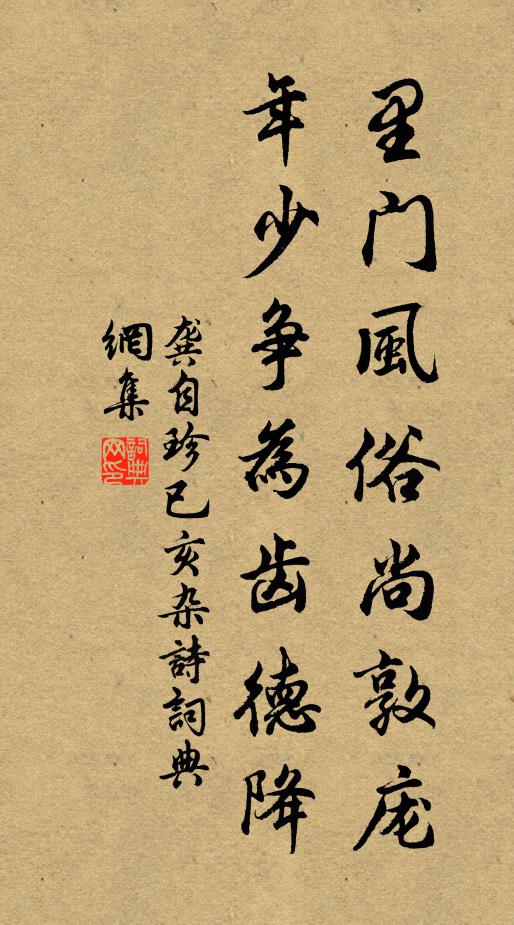 里门風俗尚敦庞
年少争為齿德降
龚自珍己亥杂詩詞典
網集
詞典
网印